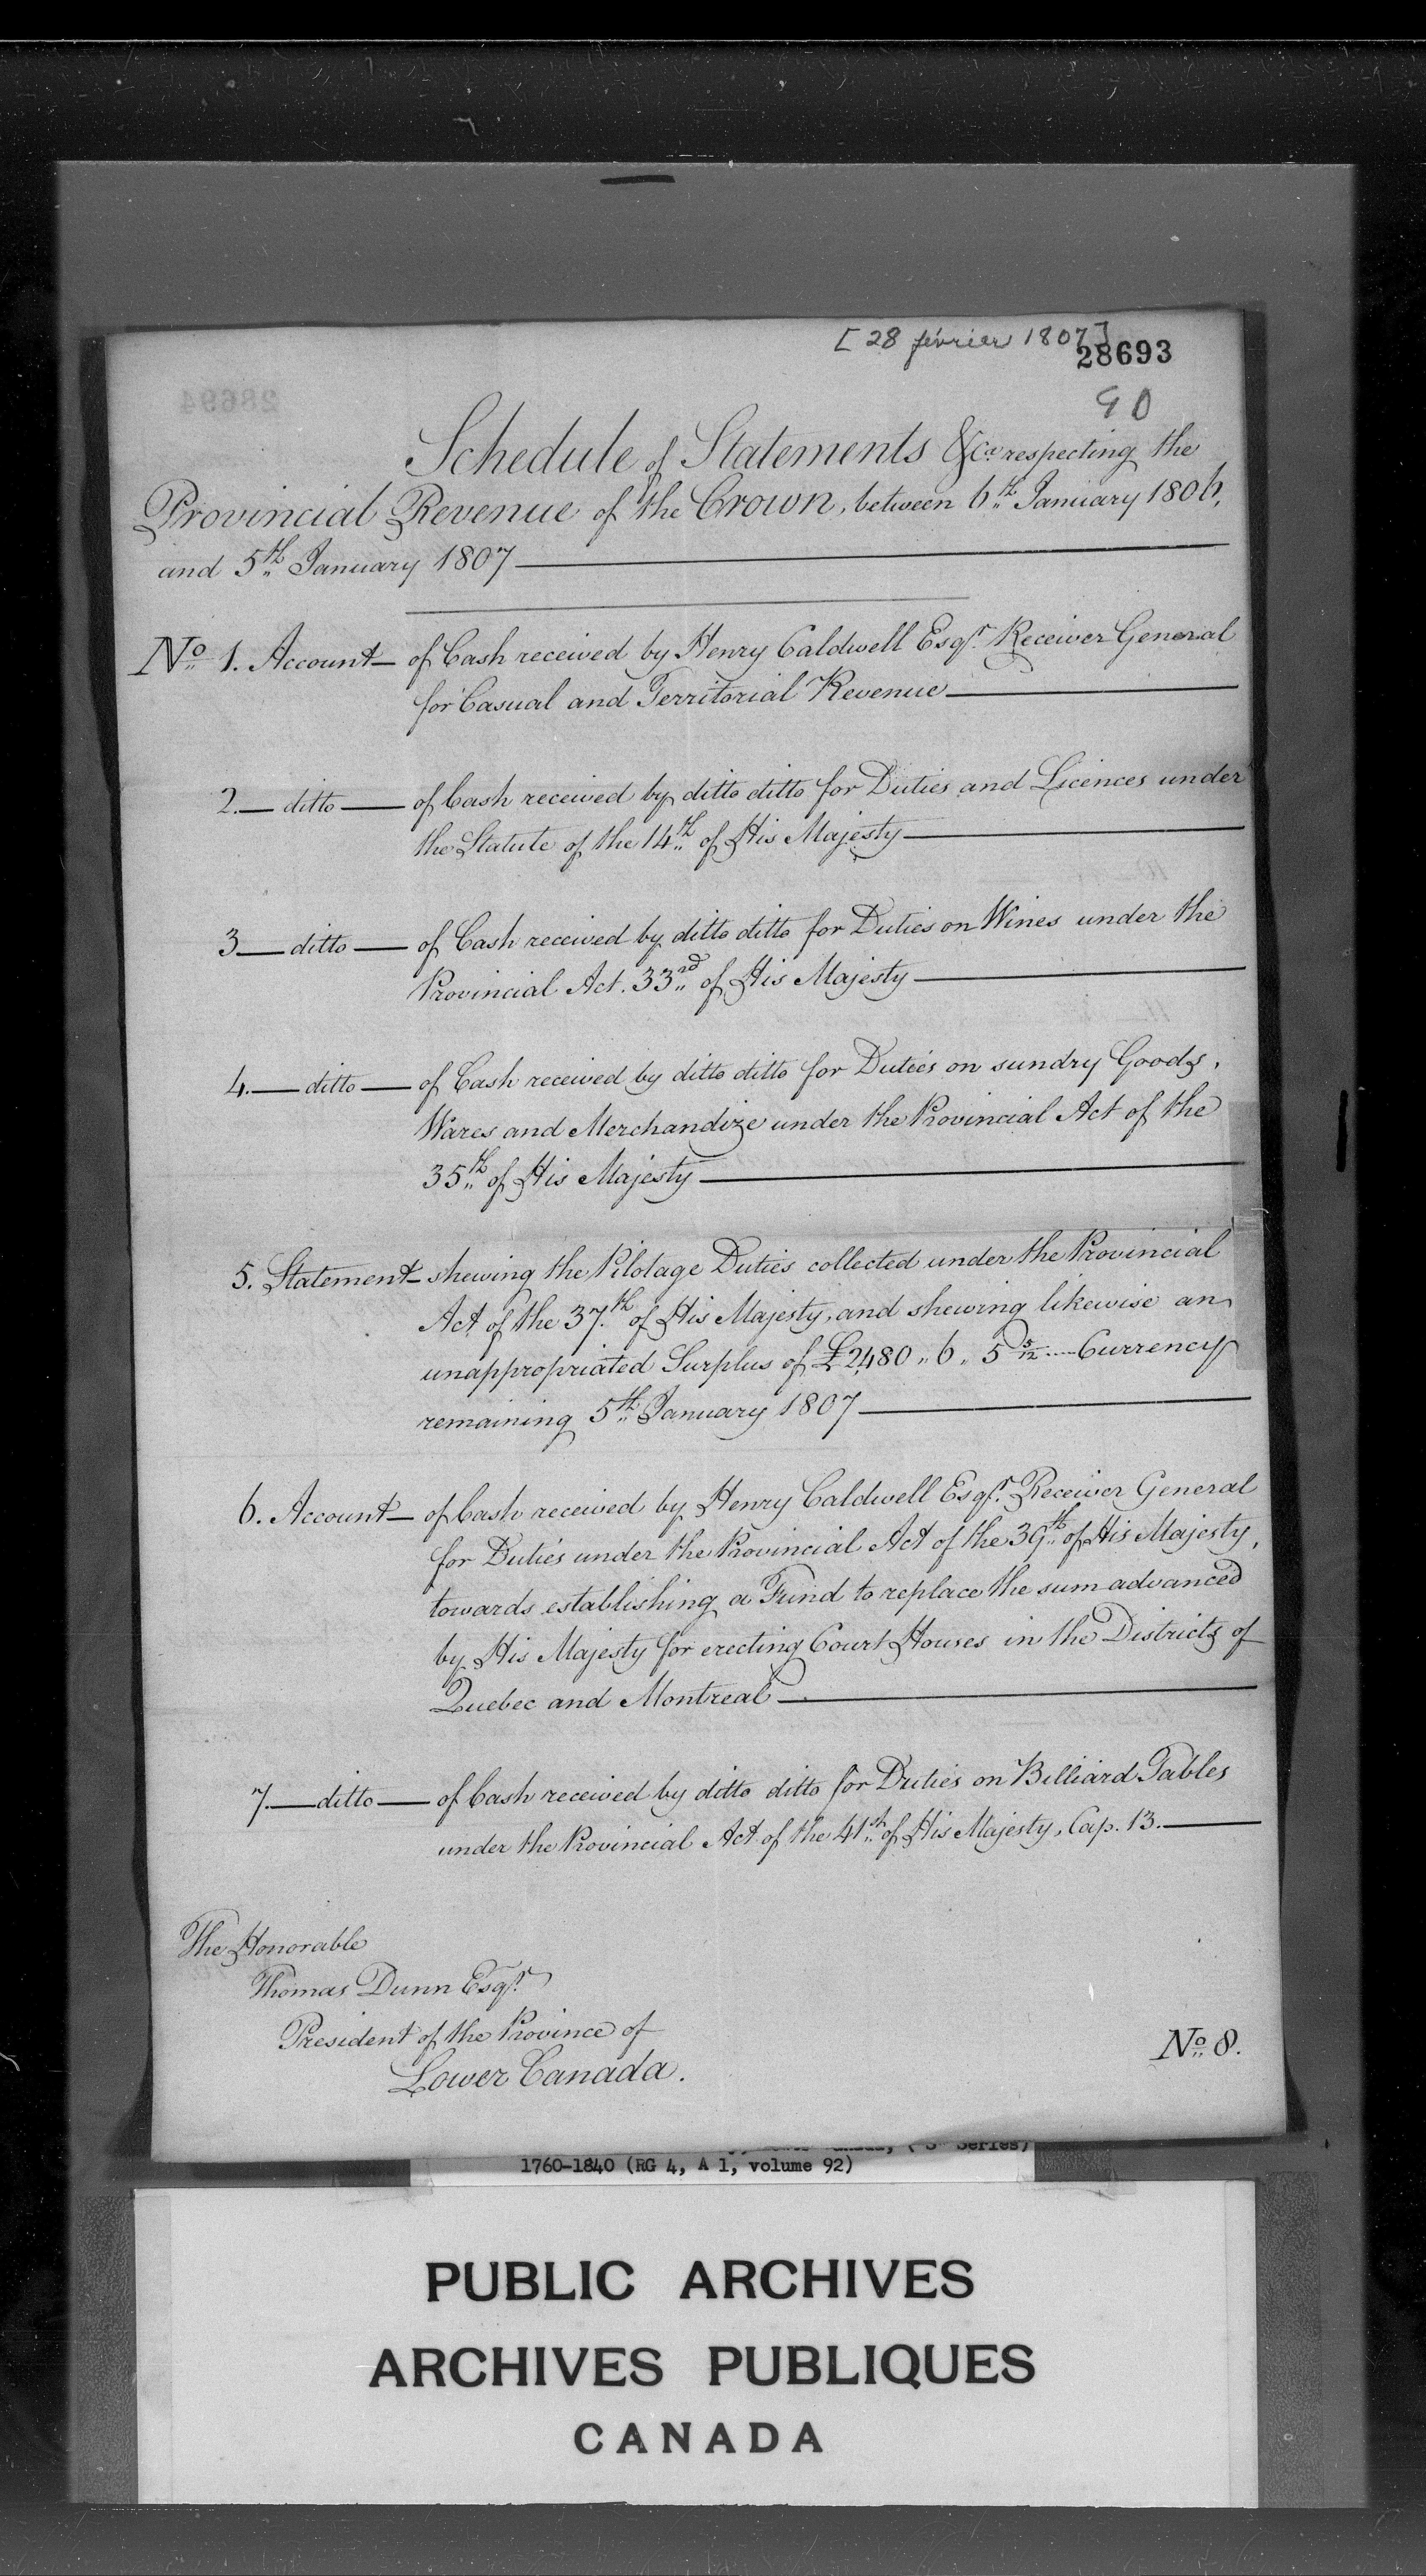 [28 février 1807]
28693
90
28694
Schedule of Statements &ca respecting the
Provincial Revenue of the Crown, between 6th January 1806,
and 5th January 1807
No 1. Account — of Cash received by Henry Caldwell Esqr. Receiver General
for Casual and Territorial Revenue
2. — ditto — of Cash received by ditto ditto for Duties and Licences under
the Statute of the 14th of His Majesty
3 — ditto — of Cash received by ditto ditto for Duties on Wines under the
Provincial Act. 33rd of His Majesty
4. — ditto — of Cash received by ditto ditto for Duties on sundry Goods,
Wares and Merchandize under the Provincial Act of the
35th of His Majesty
5. Statement — shewing the Pilotage Duties collected under the Provincial
Act of the 37th of His Majesty, and shewing likewise an
unappropriated Surplus of £2,480 „ 6 „ 5 5/12 Currency
remaining 5th January 1807
6. Account — of Cash received by Henry Caldwell Esqr. Receiver General
for Duties under the Provincial Act of the 39th of His Majesty,
towards establishing a Fund to replace the sum advanced
by His Majesty for erecting Court Houses in the Districts of
Quebec and Montreal
7. — ditto — of Cash received by ditto ditto for Duties on Billiard Tables
under the Provincial Act of the 41st of His Majesty, Cap. 13.
The Honorable
Thomas Dunn Esqr.
President of the Province of
Lower Canada.
No 8.
Series)
1760-1840 (RG 4, A 1, volume 92)
PUBLIC ARCHIVES
ARCHIVES PUBLIQUES
CANADA